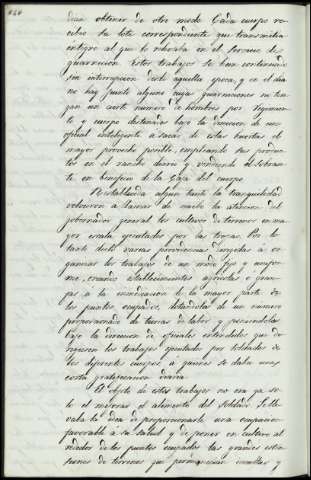 dian obtener de otro modo. Cada cuerpo re-
cibio su lote correspondiente que transmitia
integro al que le relevaba en el servicio de
guarnicion. Estos trabajos se han continuado
sin interrupcion desde aquella epoca, y en el dia
no hay punto alguno cuya guarnicion no ten-
gan un cierto numero de hombres por regimien-
to o cuerpo destinado bajo la direccion de un
oficial inteligente á sacar de estas huertas el
mayor provecho posible, empleando sus produc-
tos en el rancho diario y vendiendo el sobran-
te en beneficio de la Caja del cuerpo.
Restablecida algun tanto la tranquilidad
volvieron a llamar de nuevo la atencion del
gobernador general los cultivos de terrenos en ma-
yor escala ejecutados por las tropas. Por lo
tanto dictó varias providencias dirigidas á or-
ganizar los trabajos de un modo fijo y unifor-
me, creando establecimientos agricolas o gran-
jas á la inmediacion de la mayor parte de
los puntos ocupados, dotandolos de un numero
proporcionado de tierras de labor y poniendolos
bajo la direccion de oficiales entendidos que di-
rigiesen los trabajos ejecutados por soldados de
los diferentes cuerpos á quienes se daba una
corta gratificacion diaria.
El objeto de estos trabajos no era ya so-
lo el mejorar el alimento del soldado. Se lle-
vaba la idea de proporcionarle una ocupacion
favorable á su salud y de poner en cultivo al-
rededor de los puntos ocupados las grandes esten-
siones de terrenos que permanecian incultas y